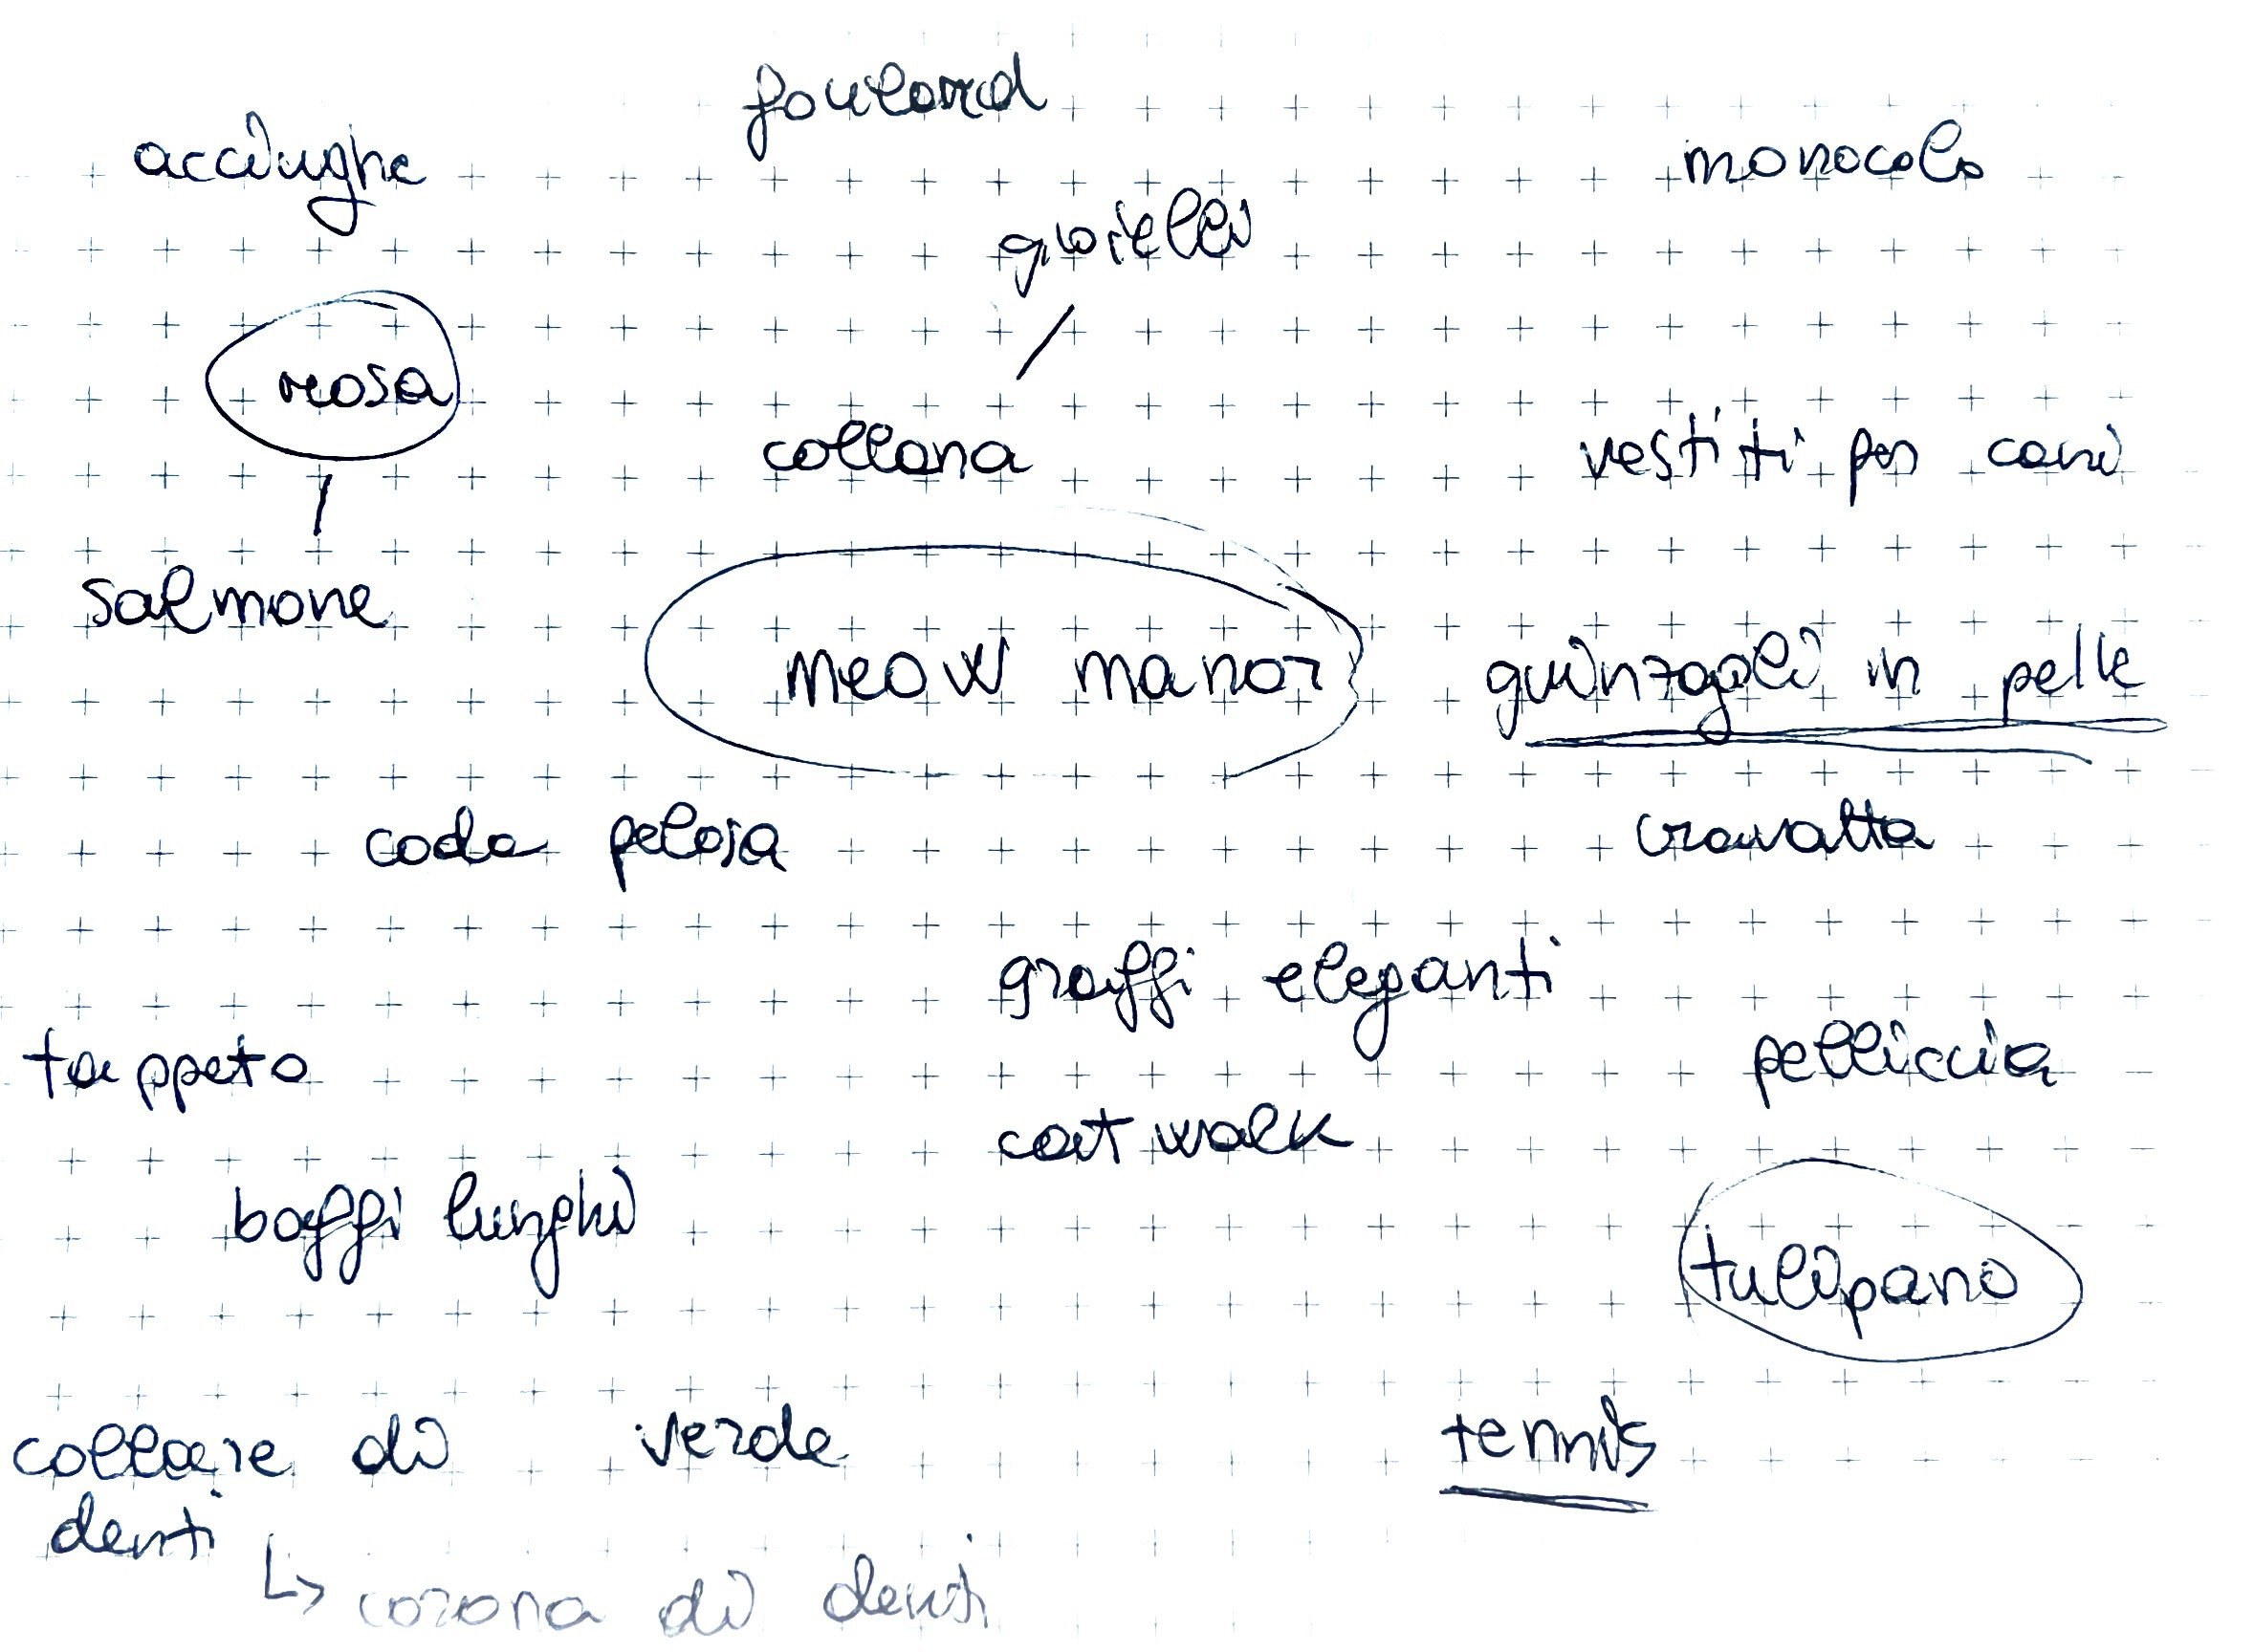 foulard
acciughe
monocolo
gioielli
rosa
collana
vestiti per cani
salmone
meow manor
guinzagli in pelle
coda pelosa
cravatta
graffi eleganti
tappeto
pelliccia
cat walk
baffi lunghi
tulipano
collare di
denti
verde
tennis
↳ corona di denti